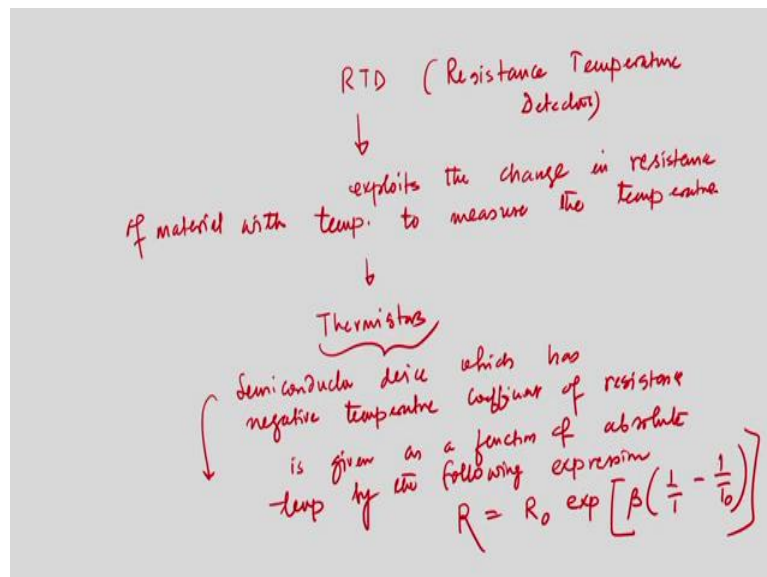 RTD (Resistance Temperature
Detectors)
↓
exploits the change in resistance
of material with temp. to measure the temperature
↓
Thermistors
Semiconductor device which has
negative temperature coefficient of resistance
is given as a function of absolute
temp by the following expression
R = R₀ exp[β(1/T - 1/T₀)]